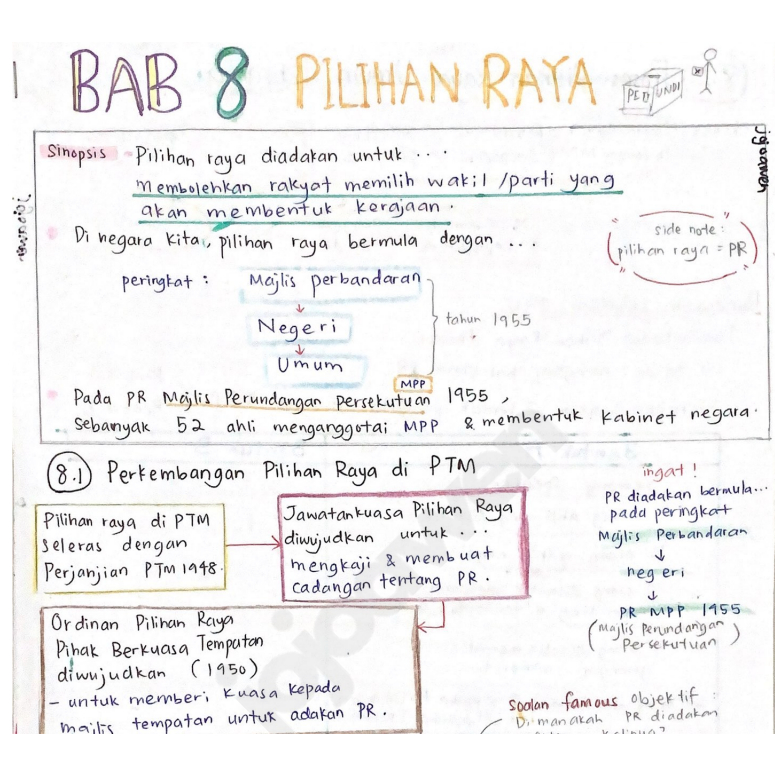 BAB 8 PILIHAN RAYA
PETI UNDI
Sinopsis - Pilihan raya diadakan untuk ...
membolehkan rakyat memilih wakil /parti yang
akan membentuk kerajaan.
jojoqweh
jojoqweh
Di negara kita, pilihan raya bermula dengan ...
side note:
pilihan raya = PR
peringkat : Majlis perbandaran
↓
Negeri
↓
Umum
tahun 1955
MPP
Pada PR Majlis Perundangan Persekutuan 1955,
Sebanyak 52 ahli menganggotai MPP & membentuk Kabinet negara.
8.1 Perkembangan Pilihan Raya di PTM
Pilihan raya di PTM
seleras dengan
Perjanjian PTM 1948.
Jawatankuasa Pilihan Raya
diwujudkan untuk ...
mengkaji & membuat
cadangan tentang PR.
ingat!
PR diadakan bermula...
pada peringkat
Majlis Perbandaran
↓
negeri
↓
PR MPP 1955
(Majlis Perundangan
Persekutuan)
Ordinan Pilihan Raya
Pihak Berkuasa Tempatan
diwujudkan (1950)
- untuk memberi kuasa kepada
majlis tempatan untuk adakan PR.
soalan famous objektif :
Di manakah PR diadakan
jojoqweh